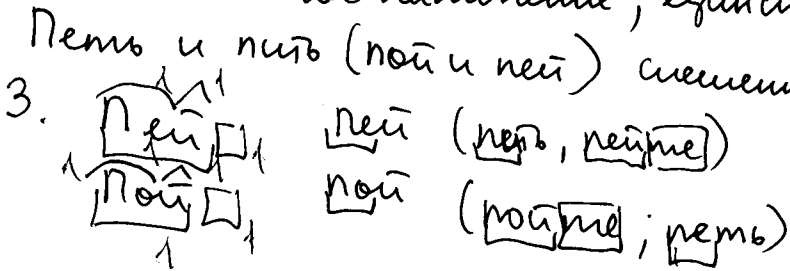 единс
Петь и пить (пой и пей) смешен
3. Пей пей (петь, пейте)
Пой пой (пойте; петь)